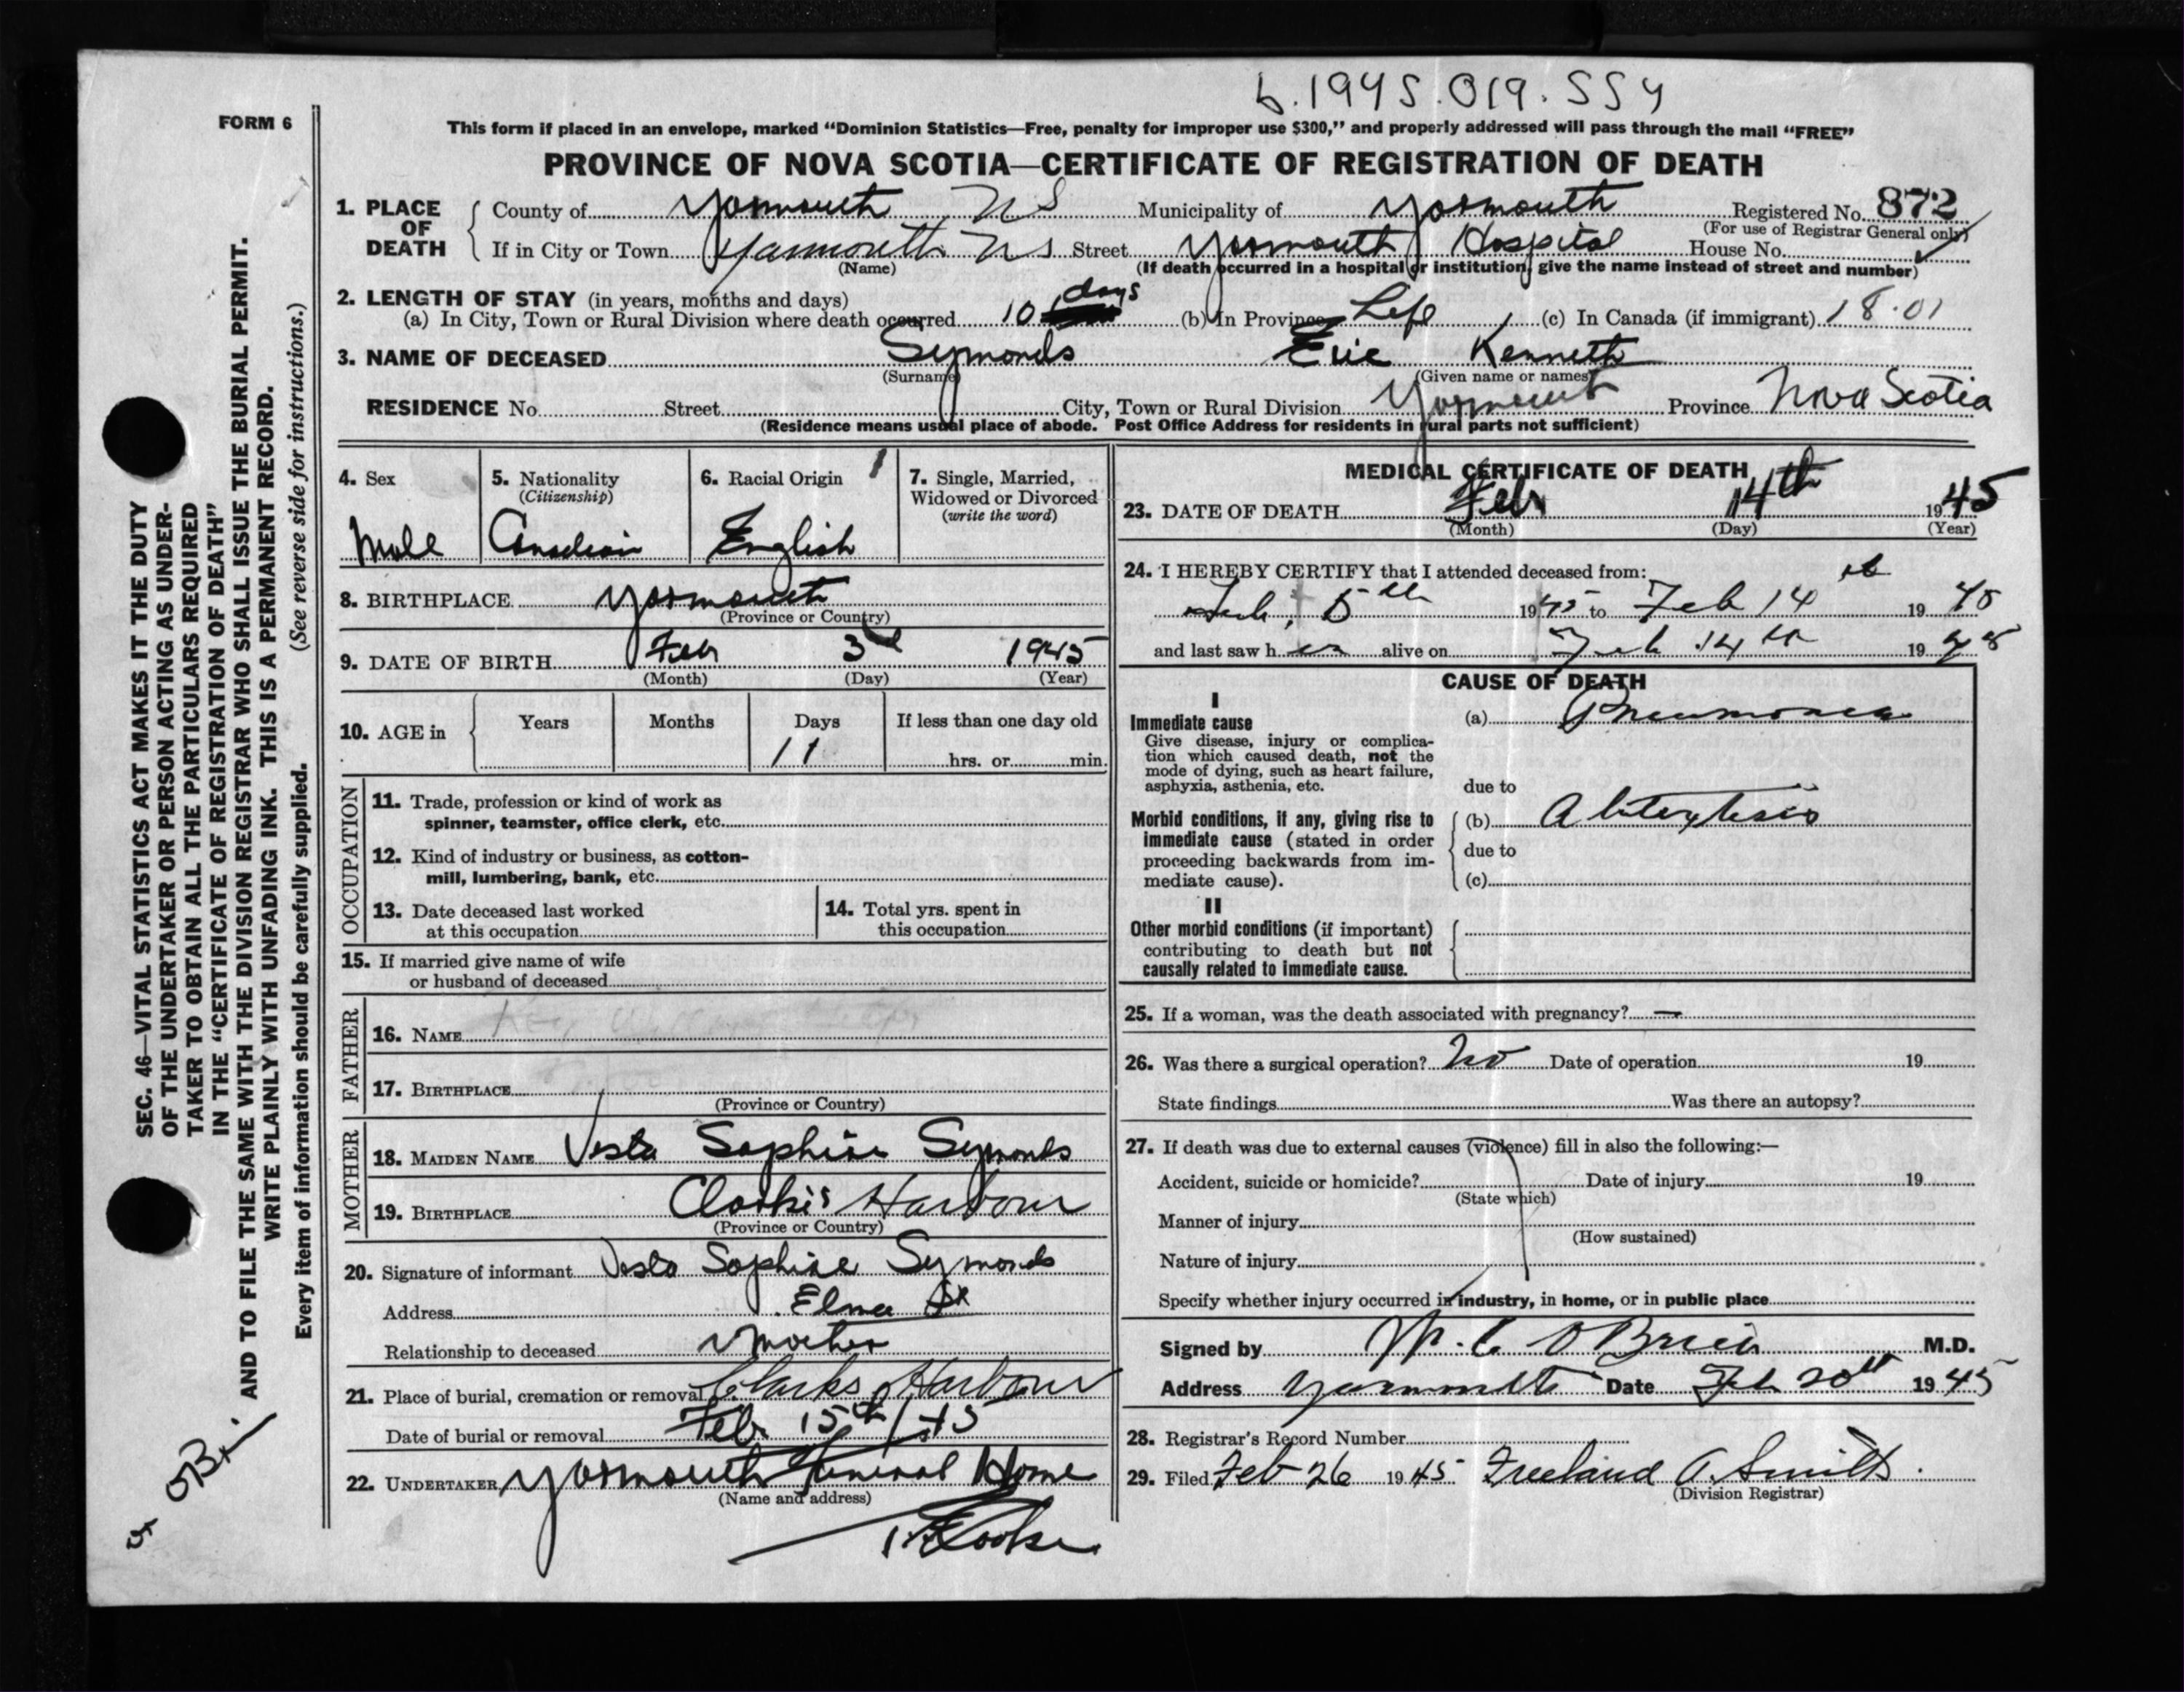 b.1945.019.554
FORM 6
This form if placed in an envelope, marked “Dominion Statistics—Free, penalty for improper use $300,” and properly addressed will pass through the mail “FREE”
PROVINCE OF NOVA SCOTIA—CERTIFICATE OF REGISTRATION OF DEATH
1. PLACE OF DEATH County of Yarmouth, NS Municipality of Yarmouth Registered No. 872
(For use of Registrar General only)
If in City or Town Yarmouth NS Street Yarmouth Hospital House No.
(Name) (If death occurred in a hospital or institution, give the name instead of street and number)
2. LENGTH OF STAY (in years, months and days)
(a) In City, Town or Rural Division where death occurred 10 days (b) In Province Life (c) In Canada (if immigrant) 18.01
3. NAME OF DECEASED Symonds Eric Kenneth
(Surname) (Given name or names)
RESIDENCE No. Street City, Town or Rural Division Yarmouth Province Nova Scotia
(Residence means usual place of abode. Post Office Address for residents in rural parts not sufficient)
4. Sex Male
5. Nationality (Citizenship) Canadian
6. Racial Origin 1 English
7. Single, Married, Widowed or Divorced (write the word)
8. BIRTHPLACE Yarmouth
(Province or Country)
9. DATE OF BIRTH Feb 3rd 1945
(Month) (Day) (Year)
10. AGE in Years Months Days If less than one day old
11 hrs. or min.
OCCUPATION
11. Trade, profession or kind of work as
spinner, teamster, office clerk, etc.
12. Kind of industry or business, as cotton-
mill, lumbering, bank, etc.
13. Date deceased last worked
at this occupation
14. Total yrs. spent in
this occupation
15. If married give name of wife
or husband of deceased
FATHER
16. NAME
17. BIRTHPLACE
(Province or Country)
MOTHER
18. MAIDEN NAME Vesta Sophie Symonds
19. BIRTHPLACE Clark's Harbour
(Province or Country)
20. Signature of informant Vesta Sophie Symonds
Address
Relationship to deceased Mother
21. Place of burial, cremation or removal Clarks Harbour
Date of burial or removal Feb 15th/45
22. UNDERTAKER Yarmouth Funeral Home
(Name and address)
MEDICAL CERTIFICATE OF DEATH
23. DATE OF DEATH Feb 14th 1945
(Month) (Day) (Year)
24. I HEREBY CERTIFY that I attended deceased from:
Feb, 5th 1945 to Feb 14 th 1945
and last saw h im alive on Feb 14th 1945
CAUSE OF DEATH
I
Immediate cause (a) Pneumonia
Give disease, injury or complica-
tion which caused death, not the
mode of dying, such as heart failure,
asphyxia, asthenia, etc. due to
Morbid conditions, if any, giving rise to (b)
immediate cause (stated in order due to
proceeding backwards from im-
mediate cause). (c)
II
Other morbid conditions (if important)
contributing to death but not
causally related to immediate cause.
25. If a woman, was the death associated with pregnancy? —
26. Was there a surgical operation? No Date of operation 19
State findings Was there an autopsy?
27. If death was due to external causes (violence) fill in also the following:—
Accident, suicide or homicide? Date of injury 19
(State which)
Manner of injury
(How sustained)
Nature of injury
Specify whether injury occurred in industry, in home, or in public place
Signed by O'Brien M.D.
Address Yarmouth Date Feb 20th 1945
28. Registrar's Record Number
29. Filed Feb 26 1945 Freeland A. Smith.
(Division Registrar)
SEC. 46—VITAL STATISTICS ACT MAKES IT THE DUTY
OF THE UNDERTAKER OR PERSON ACTING AS UNDER-
TAKER TO OBTAIN ALL THE PARTICULARS REQUIRED
IN THE “CERTIFICATE OF REGISTRATION OF DEATH”
AND TO FILE THE SAME WITH THE DIVISION REGISTRAR WHO SHALL ISSUE THE BURIAL PERMIT.
WRITE PLAINLY WITH UNFADING INK. THIS IS A PERMANENT RECORD.
Every item of information should be carefully supplied. (See reverse side for instructions.)